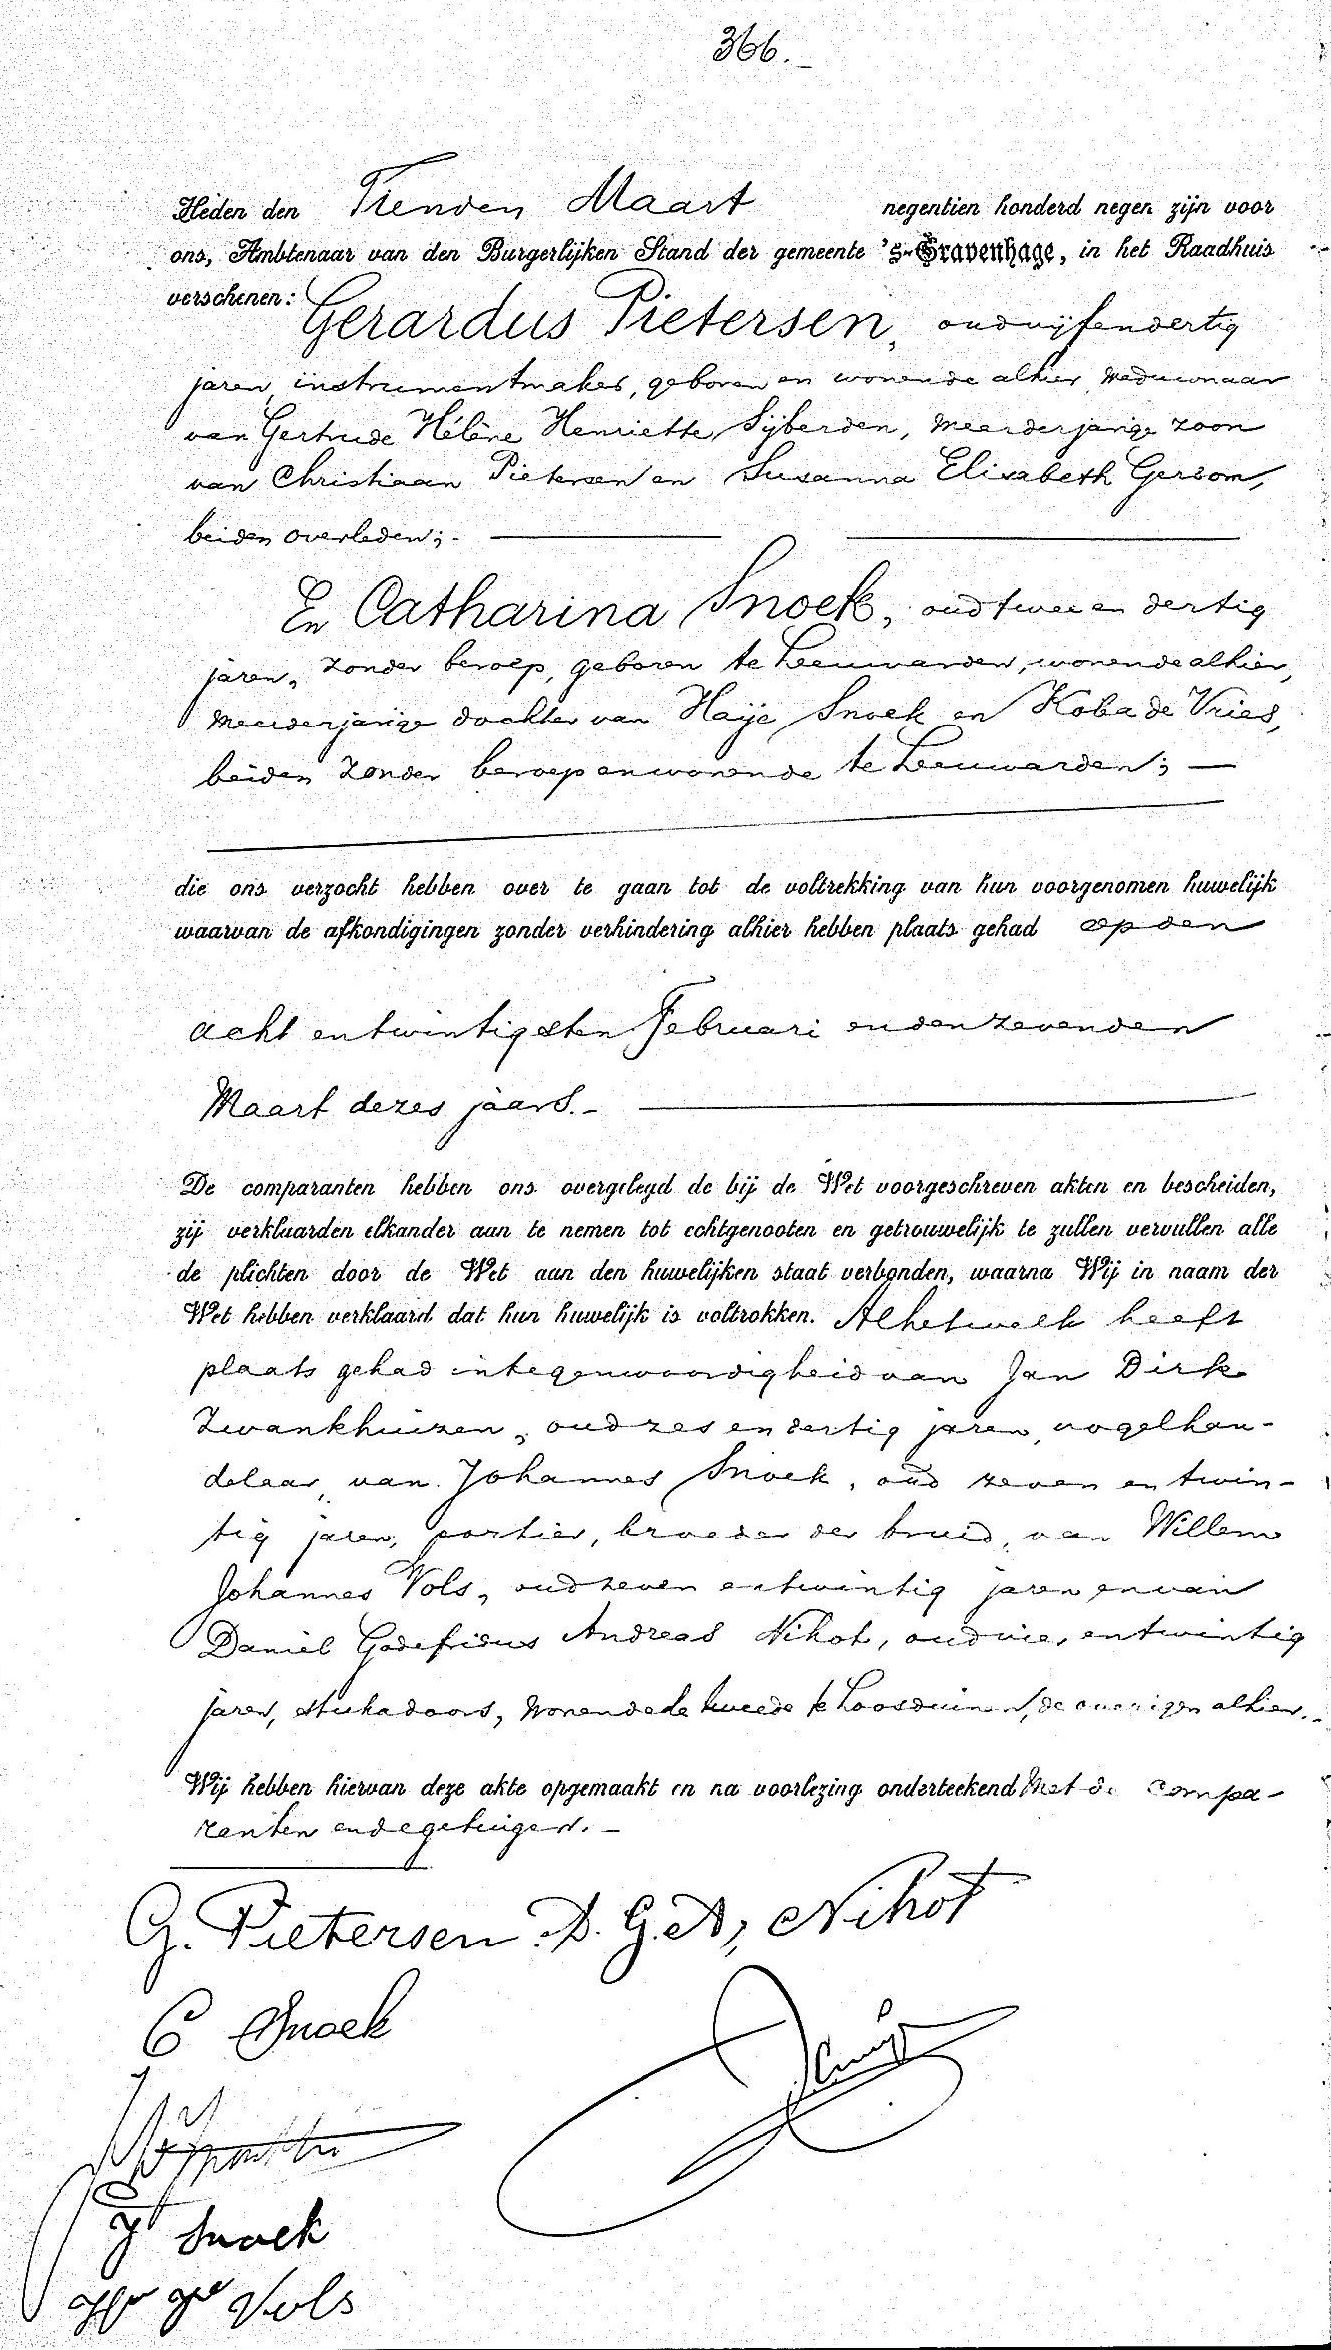 366.
Heden den Tienden Maart negentien honderd negen zijn voor
ons, Ambtenaar van den Burgerlijken Stand der gemeente 's-Gravenhage, in het Raadhuis
verschenen: Gerardus Pietersen, oud vijf en dertig
jaren, instrumentmaker, geboren en wonende alhier, weduwnaar
van Gertrude Hélène Henriette Sijberden, meerderjarige zoon
van Christiaan Pietersen en Susanna Elisabeth Gersom,
beiden overleden;.
En Catharina Snoek, oud twee en dertig
jaren, zonder beroep, geboren te Leeuwarden, wonende alhier,
meerderjarige dochter van Haije Snoek en Koba de Vries,
beiden zonder beroep en wonende te Leeuwarden; —
die ons verzocht hebben over te gaan tot de voltrekking van hun voorgenomen huwelijk
waarvan de afkondigingen zonder verhindering alhier hebben plaats gehad op den
acht en twintigsten Februari en den zevenden
Maart dezes jaars.-
De comparanten hebben ons overgelegd de bij de Wet voorgeschreven akten en bescheiden,
zij verklaarden elkander aan te nemen tot echtgenooten en getrouwelijk te zullen vervullen alle
de plichten door de Wet aan den huwelijken staat verbonden, waarna Wij in naam der
Wet hebben verklaard dat hun huwelijk is voltrokken. Al hetwelk heeft
plaats gehad in tegenwoordigheid van Jan Dirk
Zwankhuizen, oud zes en dertig jaren, vogelhan-
delaar, van Johannes Snoek, oud zeven en twin-
tig jaren, portier, broeder der bruid, van Willem
Johannes Vols, oud zeven en twintig jaren en van
Daniel Godefridus Andreas Nihot, oud vier en twintig
jaren, stukadoors, wonende de tweede te Loosduinen, de overigen alhier.-
Wij hebben hiervan deze akte opgemaakt en na voorlezing onderteekend met de compa-
ranten en de getuigen.-
G. Pietersen. D. G. A, Nihot
C Snoek
J Snoek
Vols